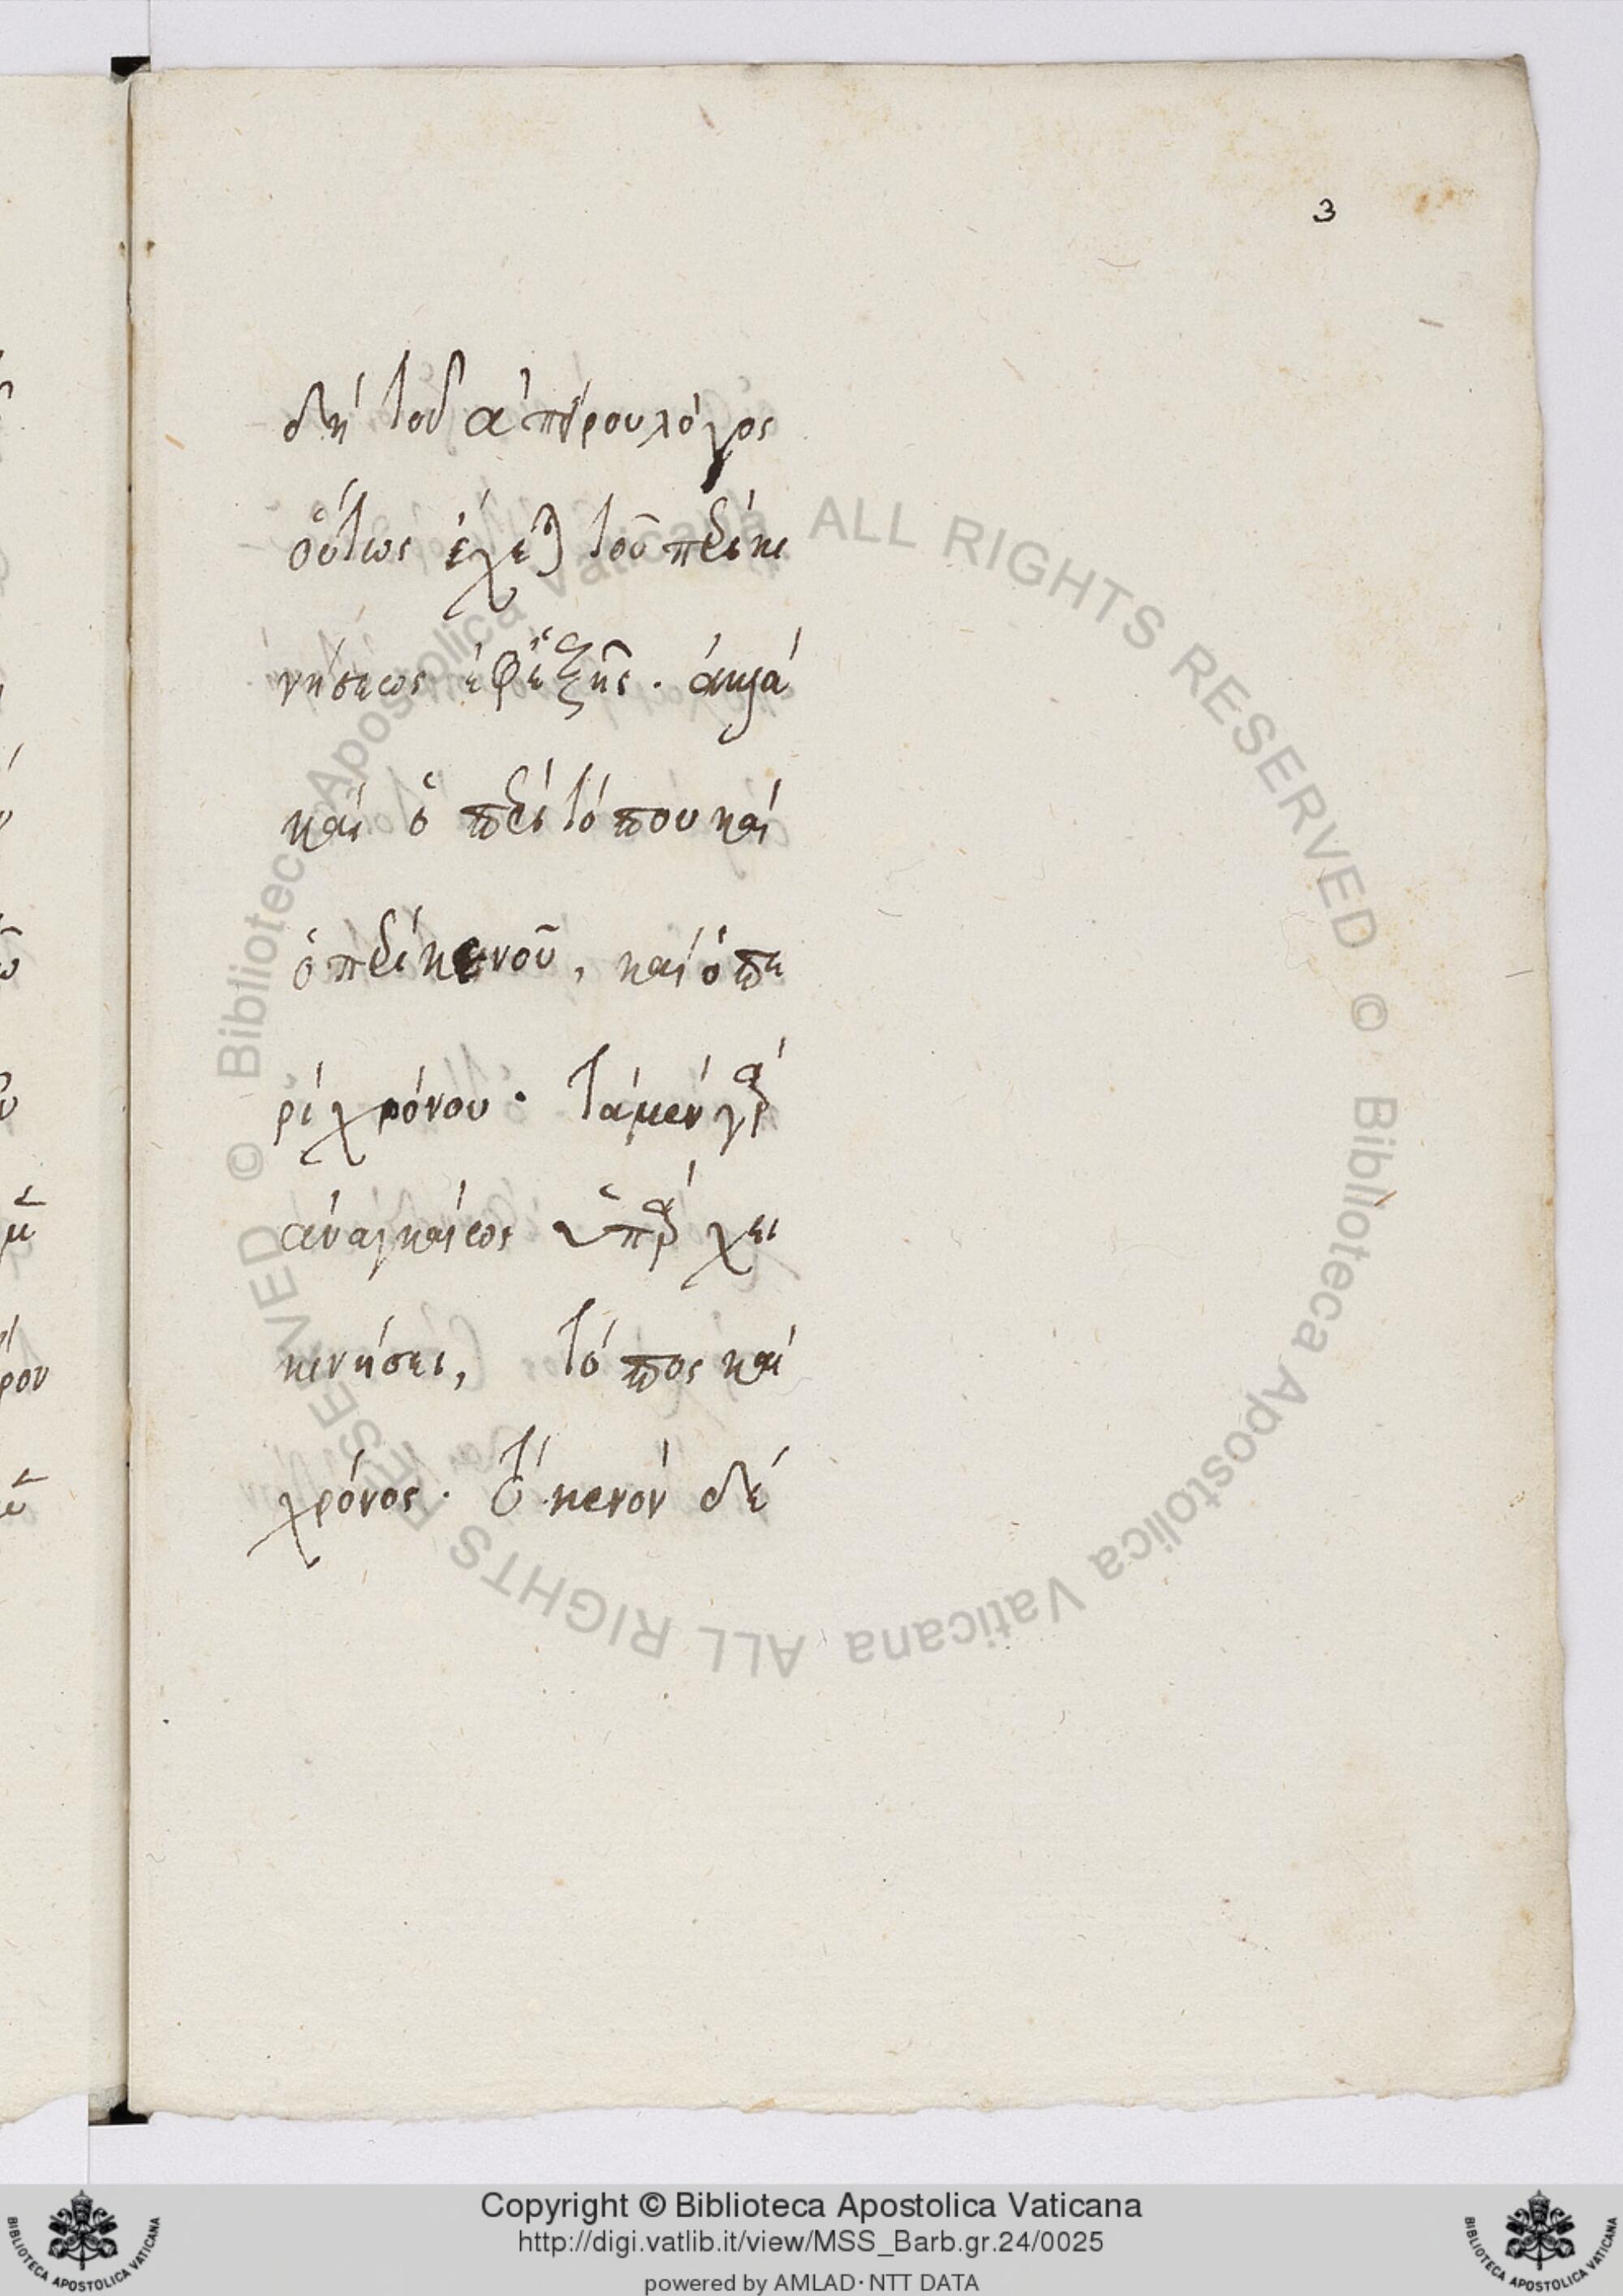 3
δὴ τοῦ ἀπείρου λόγος
οὕτως ἔχει τοῦ περὶ κι
νήσεως ἐφεξῆς. ἀλλὰ
καὶ ὁ περὶ τόπου καὶ
ὁ περὶ κενοῦ, καὶ ὁ πε
ρὶ χρόνου· τὰ μὲν γὰρ
ἀναγκαίως ὑπάρχει
κινήσει, τόπος καὶ
χρόνος· τὸ κενὸν δὲ
© Biblioteca Apostolica Vaticana ALL RIGHTS RESERVED © Biblioteca Apostolica Vaticana ALL RIGHTS RESERVED
Copyright © Biblioteca Apostolica Vaticana
http://digi.vatlib.it/view/MSS_Barb.gr.24/0025
powered by AMLAD·NTT DATA
BIBLIOTECA APOSTOLICA VATICANA
BIBLIOTECA APOSTOLICA VATICANA